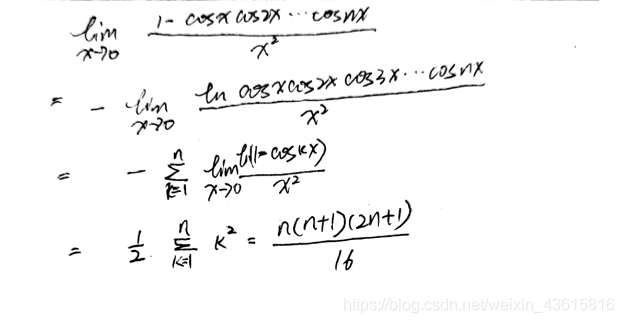 lim x→0 (1 - cosx cos2x ⋯ cosnx) / x²
= - lim x→0 (ln cosx cos2x cos3x ⋯ cosnx) / x²
= - Σ k=1 n lim x→0 ln(1-coskx) / x²
= 1/2 Σ k=1 n k² = n(n+1)(2n+1) / 16
https://blog.csdn.net/weixin_43615816